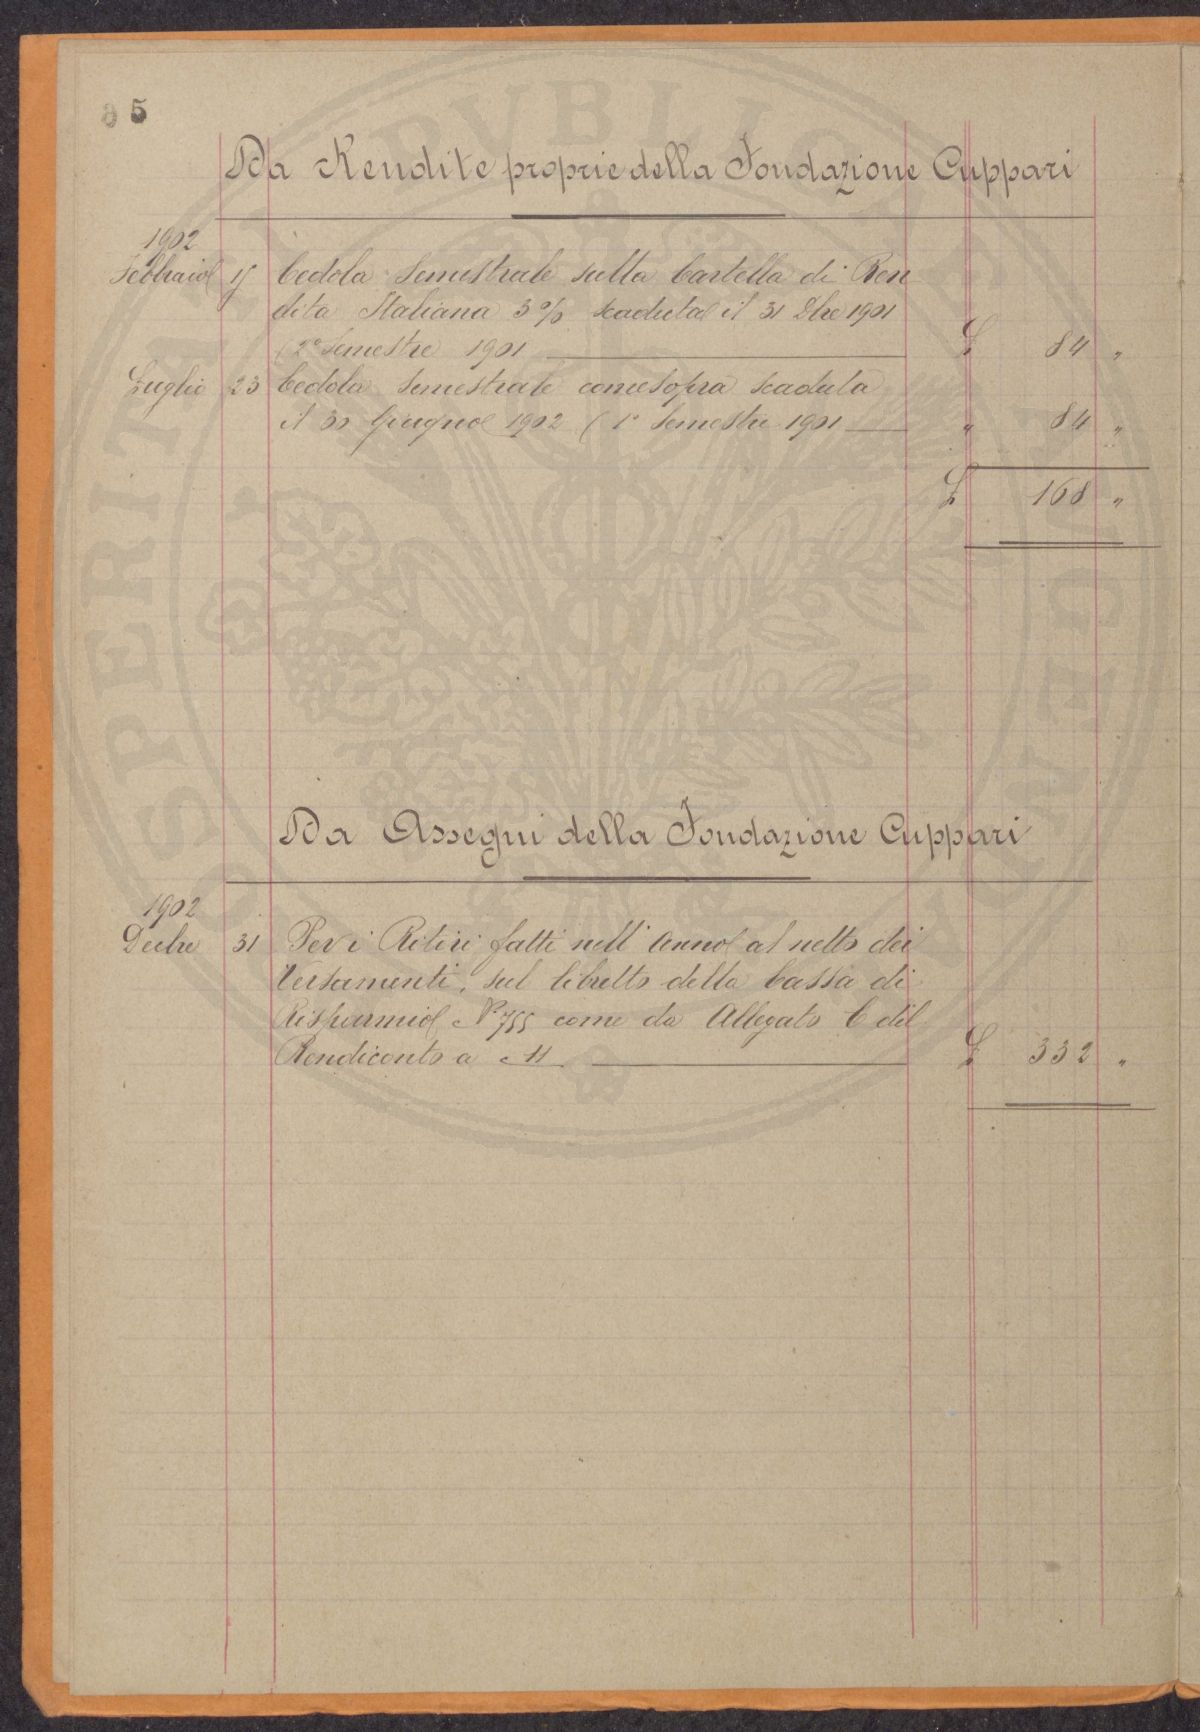 5
Da Rendite proprie della Fondazione Cuppari
1902
Febbraio Cedola Semestrale sulla Cartella di Ren
dita Italiana 3 % scaduta il 31 Dbre 1901
(2° Semestre 1901 £ 84 "
Luglio 23 Cedola semestrale come sopra scaduta
il 30 Giugno 1902 (1° Semestre 1901 " 84 "
£ 168 "
Da Assegni della Fondazione Cuppari
1902
Decbre 31 Per i Ritiri fatti nell' anno al netto dei
Versamenti, sul libretto della Cassa di
Risparmio N° 755 come da Allegato C del
Rendiconto a £ 332 "